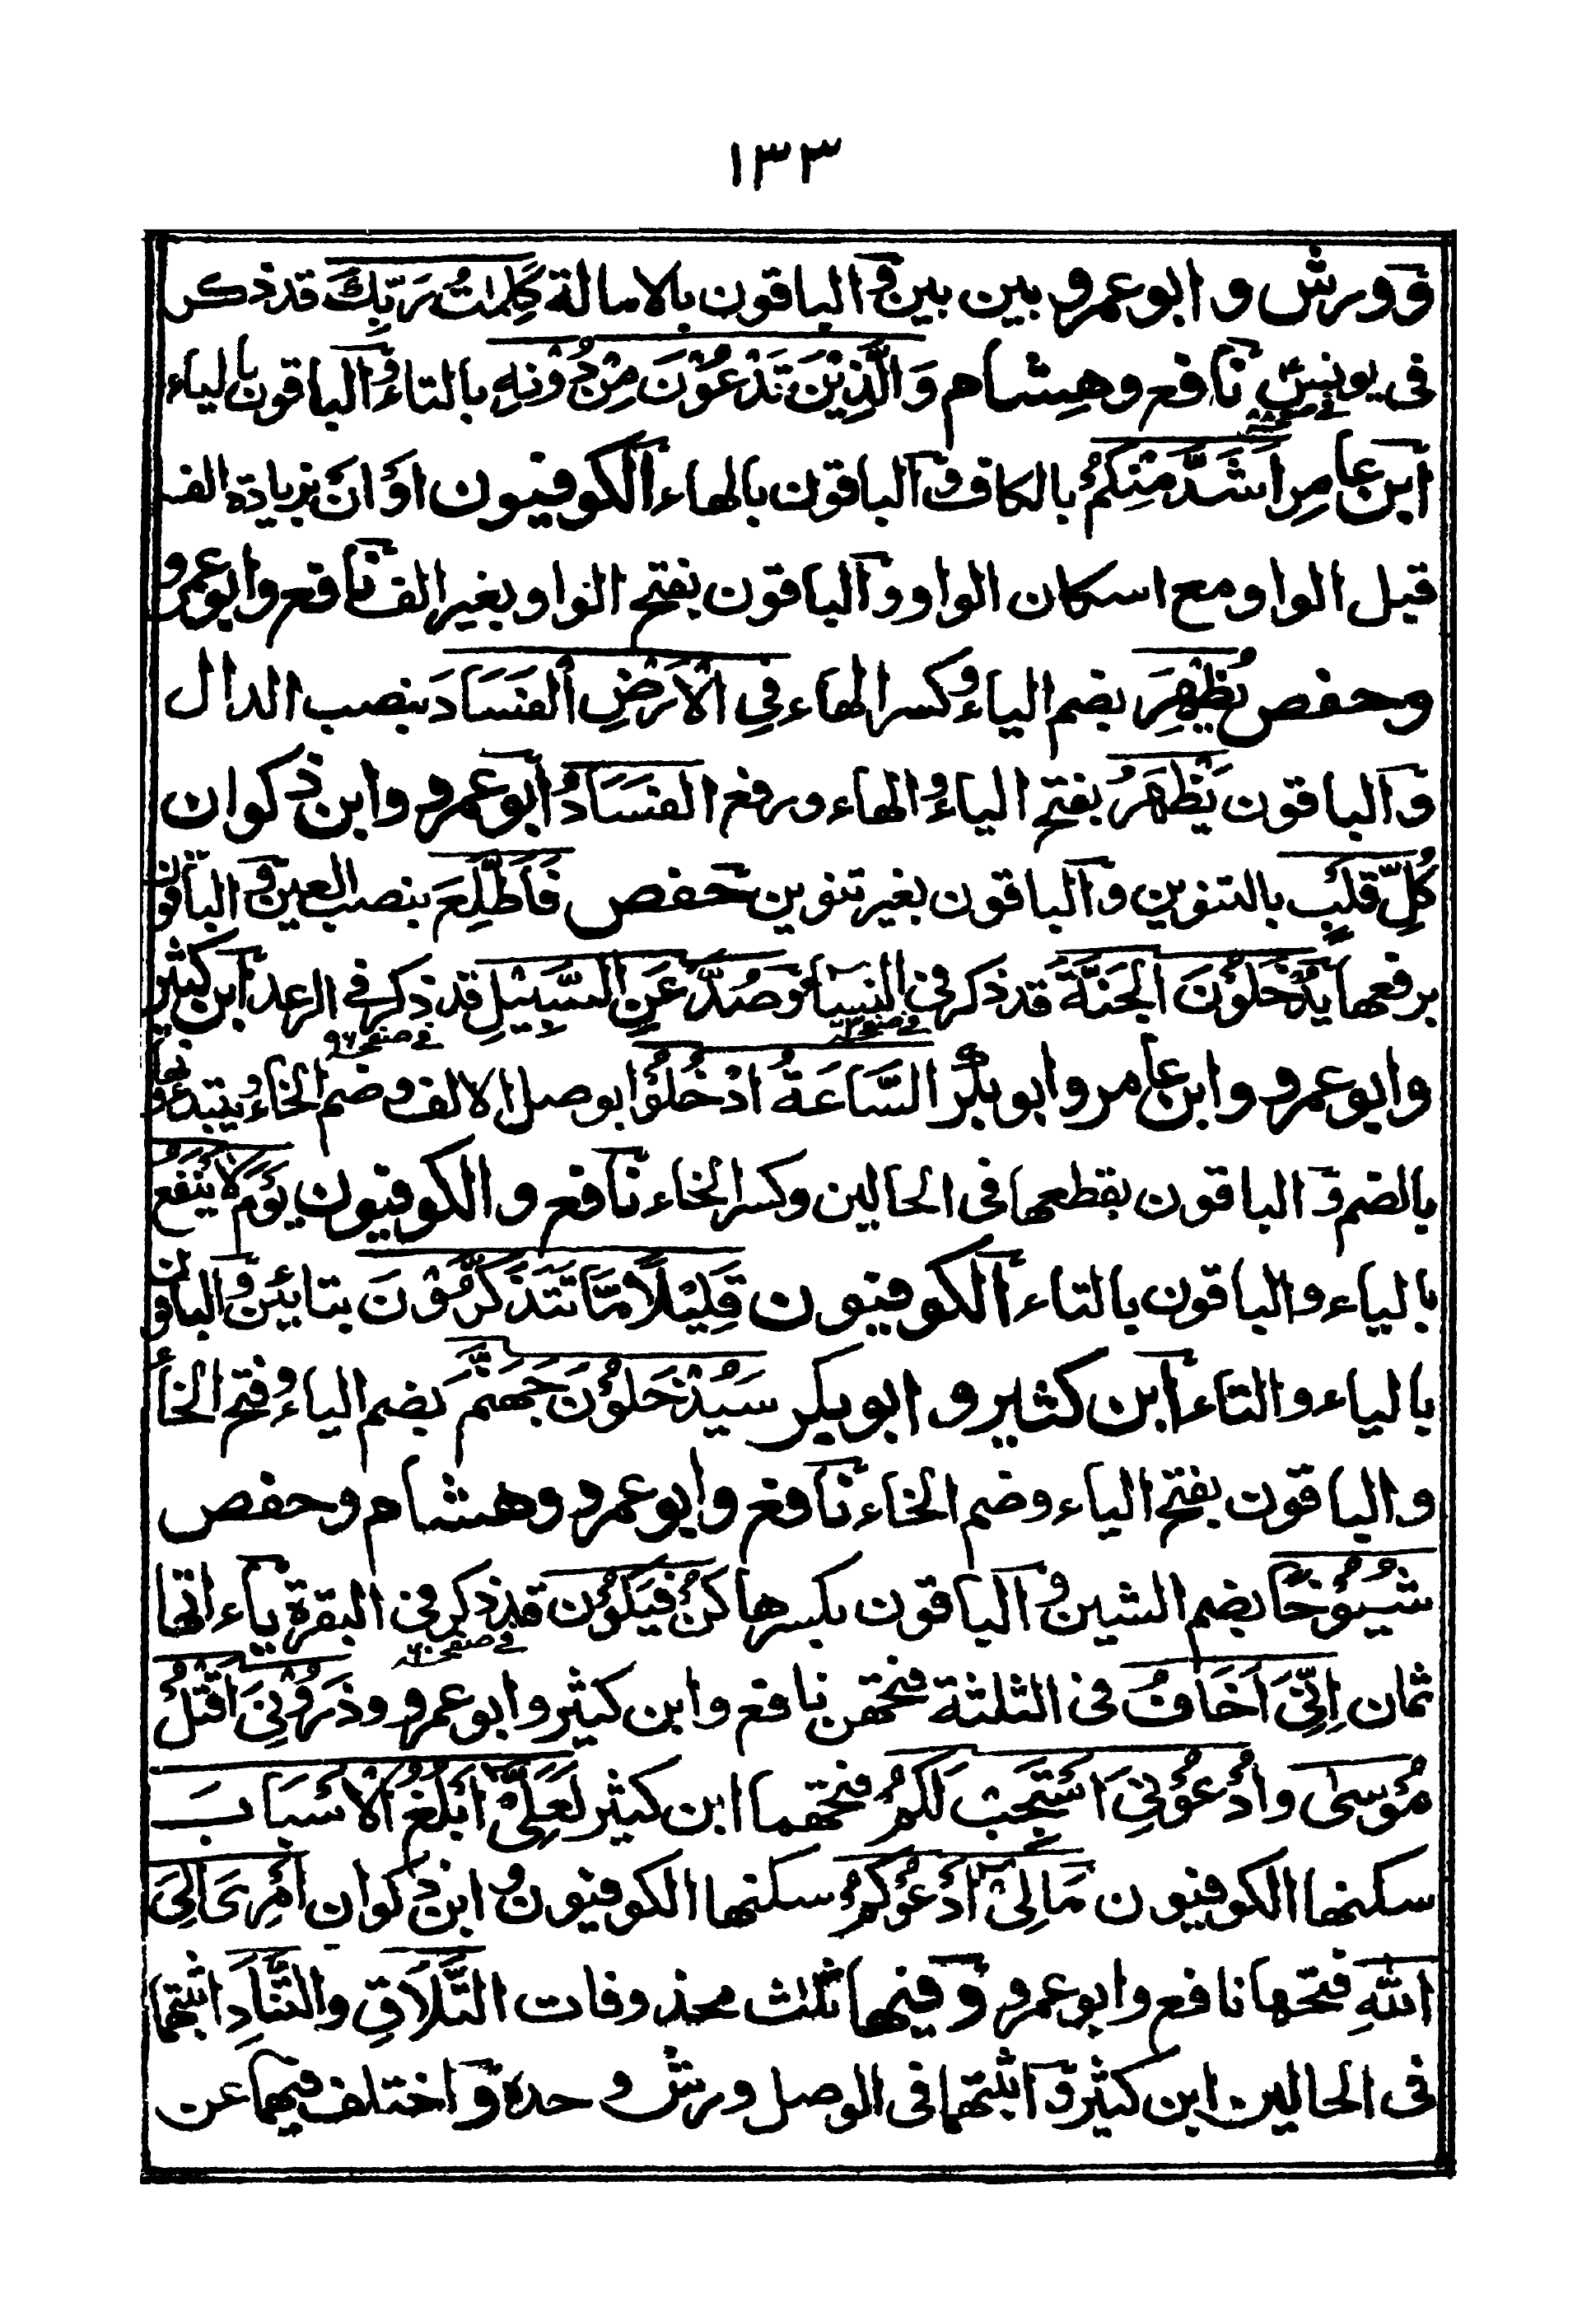 ١٣٣
وورش و ابو عمرو بين بين و الباقون بالامالة كَلِمَاتُ رَبِّكَ قد ذكر
فى يونس نافع وهشام وَالَّذِيْنَ تَدْعُوْنَ مِنْ دُوْنِهٖ بالتاء و الباقون بالياء
فى صفحه
ابن عامر اَشَدَّ مِنْكُمْ بالكاف و الباقون بالهاء الكوفيون اَوْ اَنْ بزيادة الف
قبل الواو مع اسكان الواو و الباقون بفتح الواو بغير الف نافع وابو عمرو
وحفص يُظْهِرَ بضم الياء و كسر الهاء فِى الْاَرْضِ الْفَسَادَ بنصب الدال
و الباقون يَظْهَرُ بفتح الياء و الهاء ورفع الفَسَادُ ابو عمرو وابن ذكوان
كُلِّ قَلْبٍ بالتنوين و الباقون بغير تنوين حفص فَاَطَّلِعَ بنصب العين و الباقون
برفعها يُدْخَلُوْنَ الْجَنَّةَ قد ذكر فى النساء وَصُدَّ عَنِ السَّبِيْلِ قد ذكر فى الرعد ابن كثير
فى صفحه
فى صفحه ٩٦
وابو عمرو وابن عامر وابو بكر السَّاعَةُ ادْخُلُوْا بوصل الالف و ضم الخاء و يبتدءونها
بالضم و الباقون بقطعها فى الحالين وكسر الخاء نافع و الكوفيون يَوْمَ لَا يَنْفَعُ
بالياء و الباقون بالتاء الكوفيون قَلِيْلًا مَّا تَتَذَكَّرُوْنَ بتائين و الباقون
بالياء و التاء ابن كثير و ابو بكر سَيُدْخَلُوْنَ جَهَنَّمَ بضم الياء و فتح الخاء
و الباقون بفتح الياء وضم الخاء نافع وابو عمرو وهشام وحفص
شُيُوْخًا بضم الشين و الباقون بكسرها كُنْ فَيَكُوْنُ قد ذكر فى البقرة ياءاتها
فى صفحه
ثمان اِنِّىَ اَخَافُ فى الثلثة فتحهن نافع وابن كثير وابو عمرو وذَرُوْنِىَ اَقْتُلْ
مُوْسٰى وادْعُوْنِىَ اَسْتَجِبْ لَكُمْ فتحهما ابن كثير لَعَلِّىْ اَبْلُغُ الْاَسْبَابَ
سكنها الكوفيون مَالِىْ اَدْعُوْكُمْ سكنها الكوفيون و ابن ذكوان اَمْرِىَ اِلَى
اللّٰهِ فتحها نافع وابو عمرو و فيها ثلث محذوفات التَّلَاقِ و التَّنَادِ اثبتهما
فى الحالين ابن كثير و اثبتهما فى الوصل ورش وحده و اختلف فيهما عن